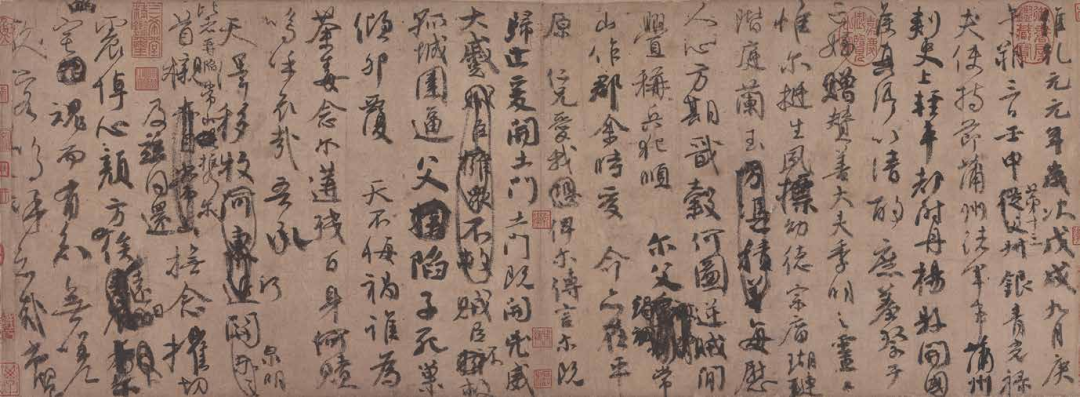 維乾元元年歲次戊戌九月庚
午朔三日壬申第十三從父叔銀青光祿
夫使持節蒲州諸軍事蒲州
刺史上輕車都尉丹楊縣開國
侯真卿以清酌庶羞祭于
亡姪贈贊善大夫季明之靈曰
惟爾挺生夙標幼德宗廟瑚璉
階庭蘭玉方憑積善每慰
人心方期戩穀何圖逆賊間
釁稱兵犯順爾父竭誠常
山作郡余時受命亦在平
原仁兄愛我俾爾傳言爾既
歸止爰開土門土門既開兇威
大蹙賊臣擁衆不救賊臣不救
孤城圍逼父陷子死巢
傾卵覆天不悔禍誰為
荼毒念爾遘殘百身何贖
嗚呼哀哉吾承
天澤移牧河關泉明
比者再陷常山攜爾
首櫬及茲同還撫念摧切
震悼心顏方俟遠日
幽宅魂而有知無嗟
久客嗚呼哀哉尚饗